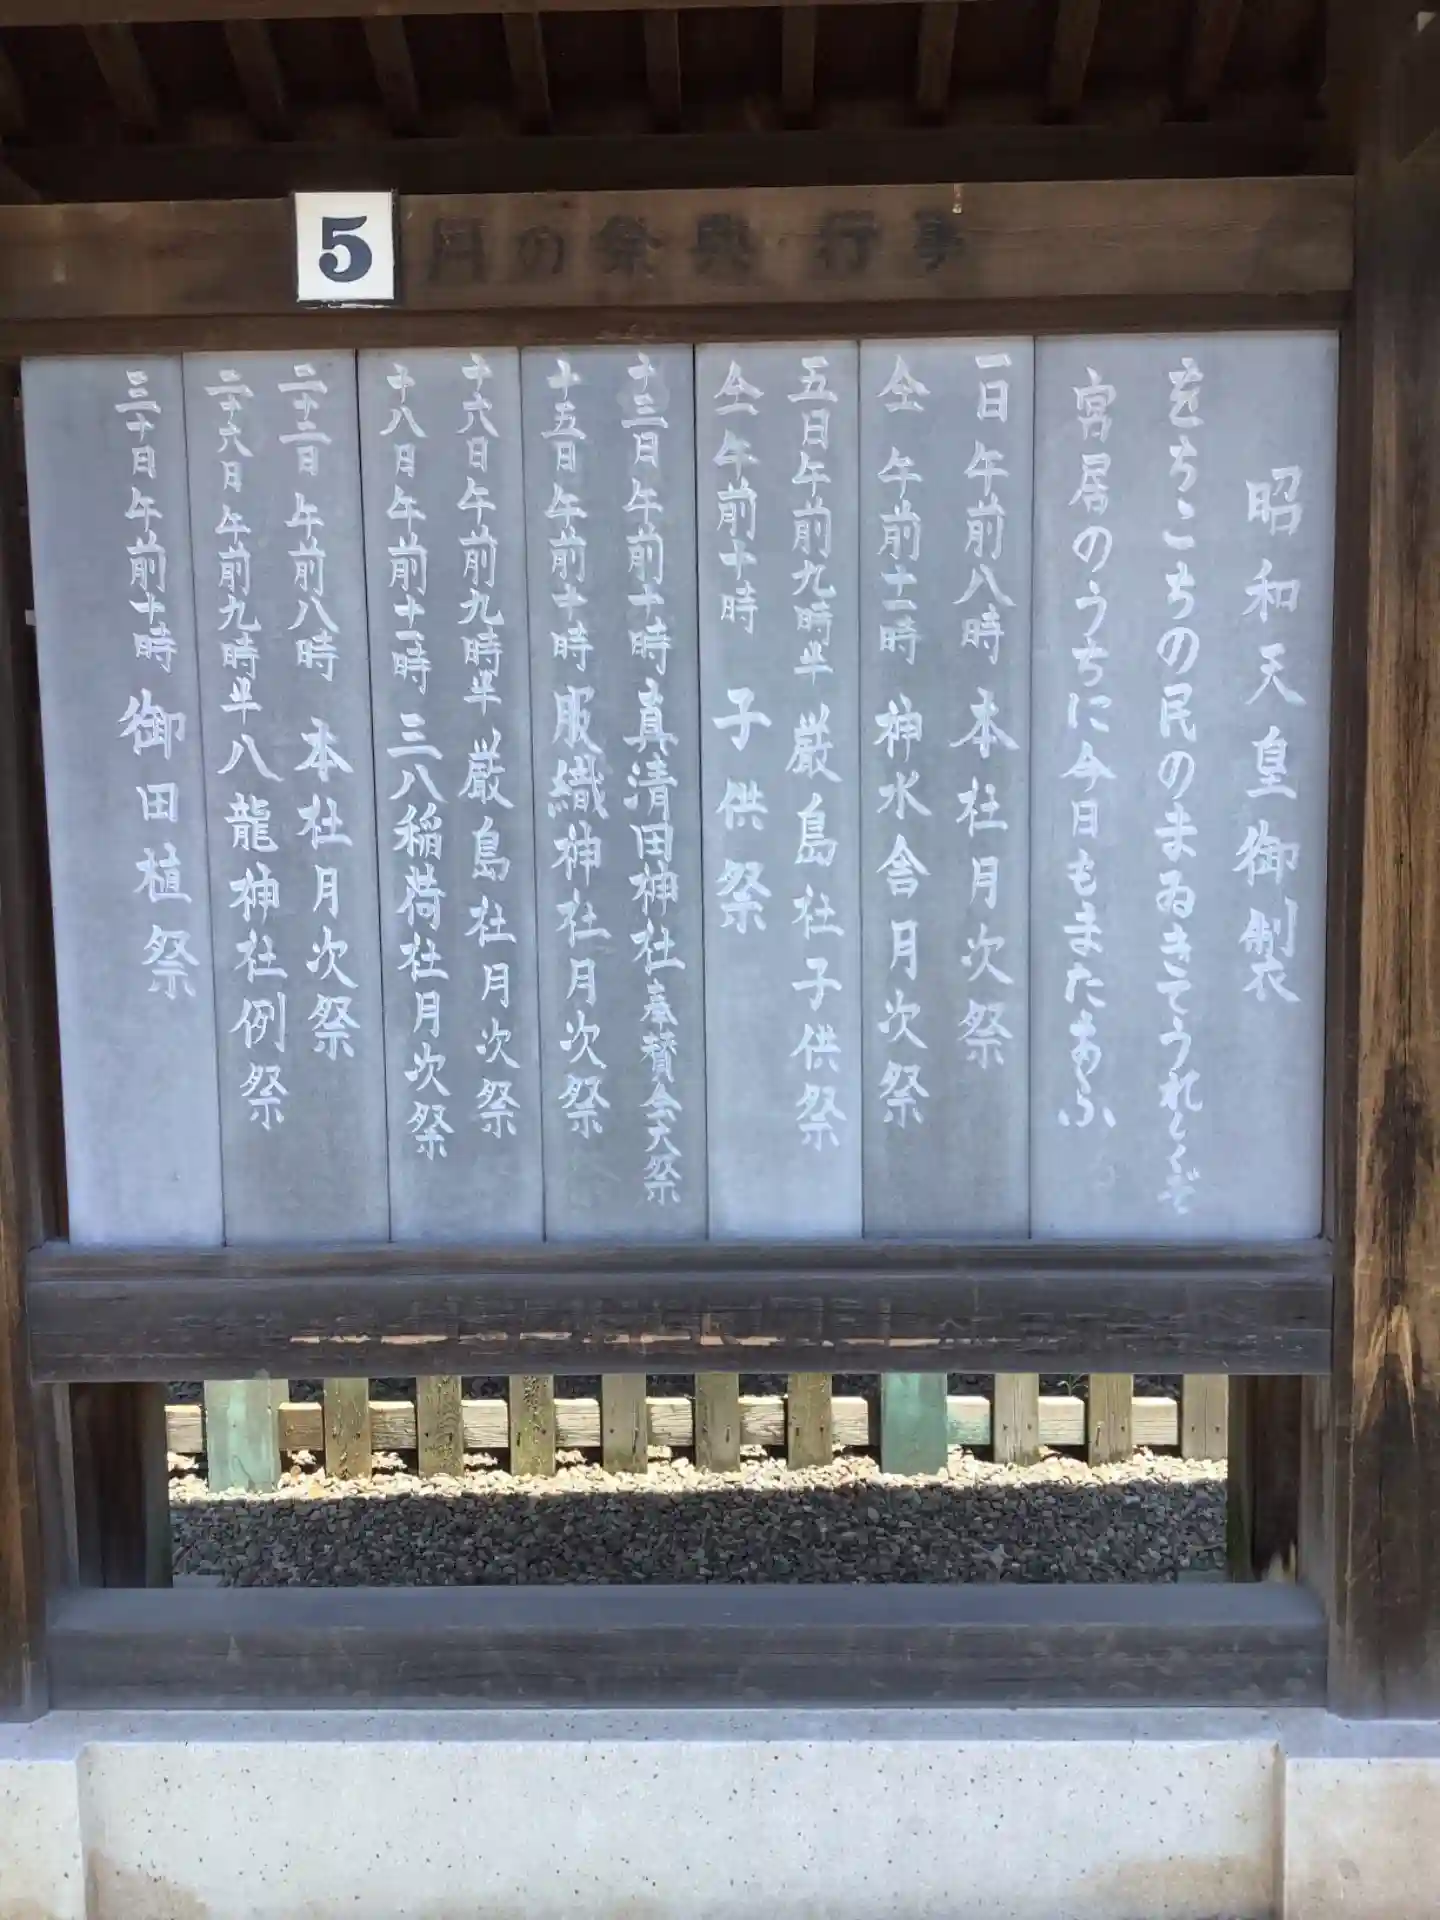 5月の祭典・行事
昭和天皇御製
をちこちの民のまゐきてうれしくぞ
宮居のうちに今日もまたあふ
一日午前八時 本社月次祭
仝 午前十一時 神水舎月次祭
五日午前九時半 厳島社子供祭
仝 午前十時 子供祭
十三日午前十時 真清田神社奉賛会大祭
十五日午前十時 服織神社月次祭
十六日午前九時半 厳島社月次祭
十八日午前十一時 三八稲荷社月次祭
二十二日午前八時 本社月次祭
二十六日午前九時半 八龍神社例祭
三十日午前十時 御田植祭